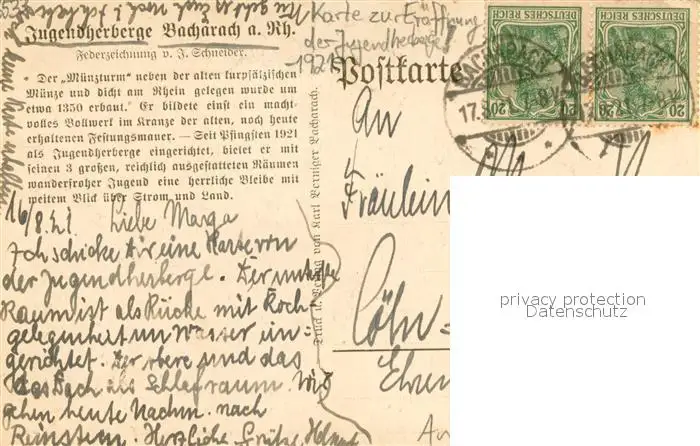 Jugendherberge Bacharach a. Rh.
Federzeichnung v. J. Schneider.
• Der „Münzturm“ neben der alten kurpfälzischen
Münze und dicht am Rhein gelegen wurde um
etwa 1350 erbaut. Er bildete einst ein macht-
volles Bollwerk im Kranze der alten, noch heute
erhaltenen Festungsmauer. — Seit Pfingsten 1921
als Jugendherberge eingerichtet, bietet er mit
seinen 3 großen, reichlich ausgestatteten Räumen
wanderfroher Jugend eine herrliche Bleibe mit
weitem Blick über Strom und Land.
16/8.21 Liebe Marga
Ich schicke Dir eine Karte von
der Jugendherberge. Der unterste
Raum ist als Küche mit Koch-
gelegenheit und Wasser ein-
gerichtet. Der obere und das
Dach als Schlafraum. Wir
gehen heute Nachm. nach
Rheinstein. Herzliche Grüße Helmut
Karte zur Eröffnung
der Jugendherberge
1921
Postkarte
Druck u. Verlag von Karl Berniger Bacharach.
An
Fräulein
Cöln-
Ehren
DEUTSCHES REICH
20 20
DEUTSCHES REICH
20 20
BACHARACH
17.8
privacy protection
Datenschutz